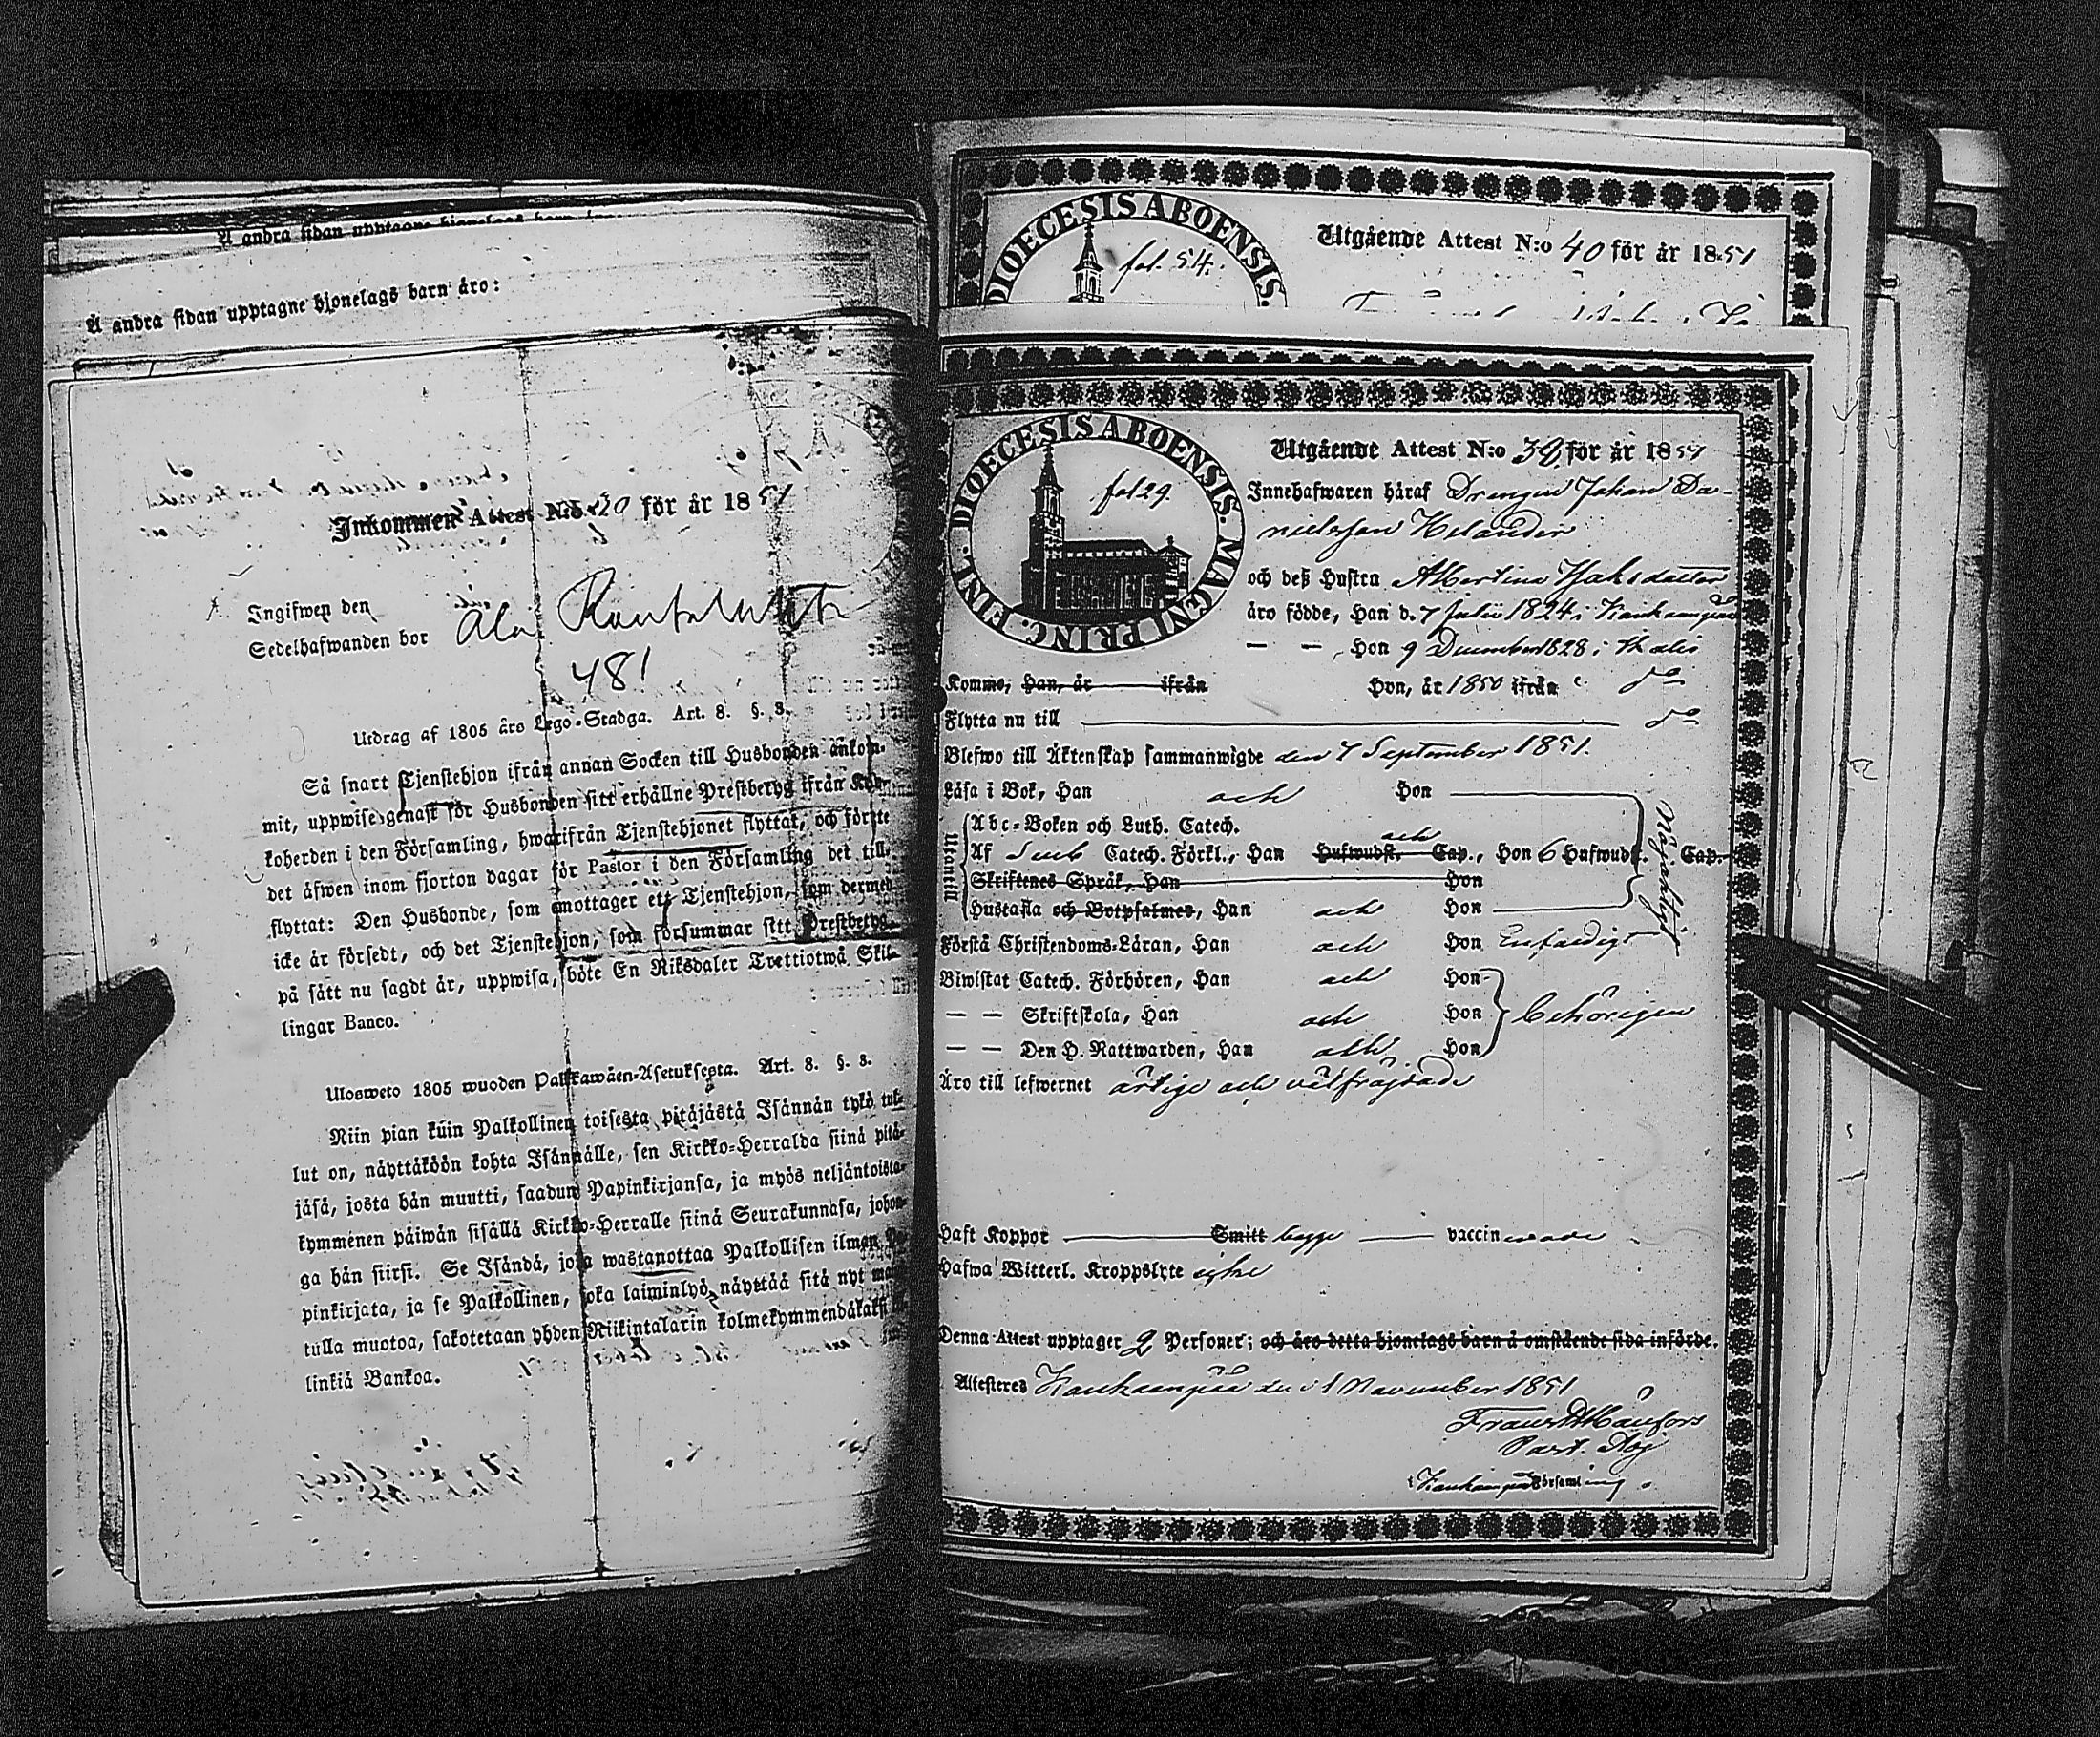 Å andra sidan upptagne hjonelags barn äro:
Inkommen Attest N:o 30 för år 1851
Ingifwen den
Sedelhafwanden bor Ala
481
Utdrag af 1805 års Lego-Stadga. Art. 8. §. 3.
Så snart Tjenstehjon ifrån annan Socken till Husbonden ankom-
mit, uppwise genast för Husbonden sitt erhållne Prestbetyg ifrån Kyr-
koherden i den Församling, hwarifrån Tjenstehjonet flyttat, och förete
det äfwen inom fjorton dagar för Pastor i den Församling det till-
flyttat: Den Husbonde, som emottager ett Tjenstehjon, som dermed
icke är försedt, och det Tjenstehjon, som försummar sitt Prestbetyg
på sätt nu sagdt är, uppwisa, böte En Riksdaler Trettiotwå Skil-
lingar Banco.
Ulosweto 1805 wuoden Palkkawäen-Asetuksesta. Art. 8. §. 3.
Niin pian kuin Palkollinen toisesta pitäjästä Isännän tykö tul-
lut on, näyttäköön kohta Isännälle, sen Kirkko-Herralda siinä pitä-
jäsä, josta hän muutti, saadun Papinkirjansa, ja myös neljäntoista-
kymmenen päiwän sisällä Kirkko-Herralle siinä Seurakunnasa, johon-
ga hän siirsi. Se Isändä, joka wastanottaa Palkollisen ilman Pa-
pinkirjata, ja se Palkollinen, joka laiminlyö näyttää sitä nyt mai-
tulla muotoa, sakotetaan yhden Riikintalarin kolmekymmendäkaksi
linkiä Bankoa.
DIOECESIS ABOENSIS.
fol. 54.
Utgående Attest N:o 40 för år 1851
DIOECESIS ABOENSIS. MAGNI PRINC. FINL.
fol 29.
Utgående Attest N:o 39 för år 1851
Innehafwaren häraf Drengen Johan Da-
nielsson Helander
och deß Hustru Albertina Isaksdotter
äro födde, Han d. 7 Julii 1824 i Kankaanpää
— — Hon 9 December 1828 i
Kommo, Han, år ifrån Hon, år 1850 ifrån do
Flytta nu till do
Blefwo till Äktenskap sammanwigde den 7 September 1851.
Läsa i Bok, Han och Hon
Utantill
Abc-Boken och Luth. Catech.
Af Catech. Förkl., Han Hufwudst. och Cap., Hon 6 Hufwudst. Cap.
Skriftenes Språk, Han Hon
Hustafla och Botpsalmer, Han och Hon
Någorlunda
Förstå Christendoms-Läran, Han och Hon Enfaldigt
Biwistat Catech. Förhören, Han och Hon
— — Skriftskola, Han och Hon behörigen
— — Den H. Nattwarden, Han och Hon
Äro till lefwernet ärlige och välfräjdade
Haft Koppor Smitt begge vaccinerade
Hafwa Witterl. Kroppslyte icke
Denna Attest upptager 2 Personer; och äro detta hjonelags barn å omstående sida införde.
Attesteres Kankaanpää den 1 November 1851
Past.
i Kankaanpää Församling